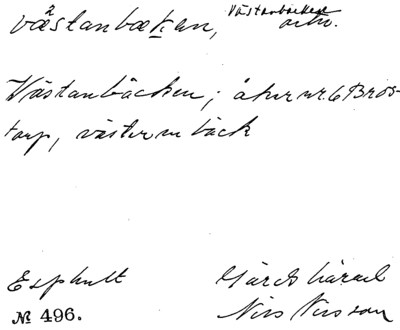 västanbækan, Västanbäcken
Västanbäcken; åker nr. 6 Bros-
torp, väster om bäck
Esphult Gärds härad
№ 496. Nils Nilsson